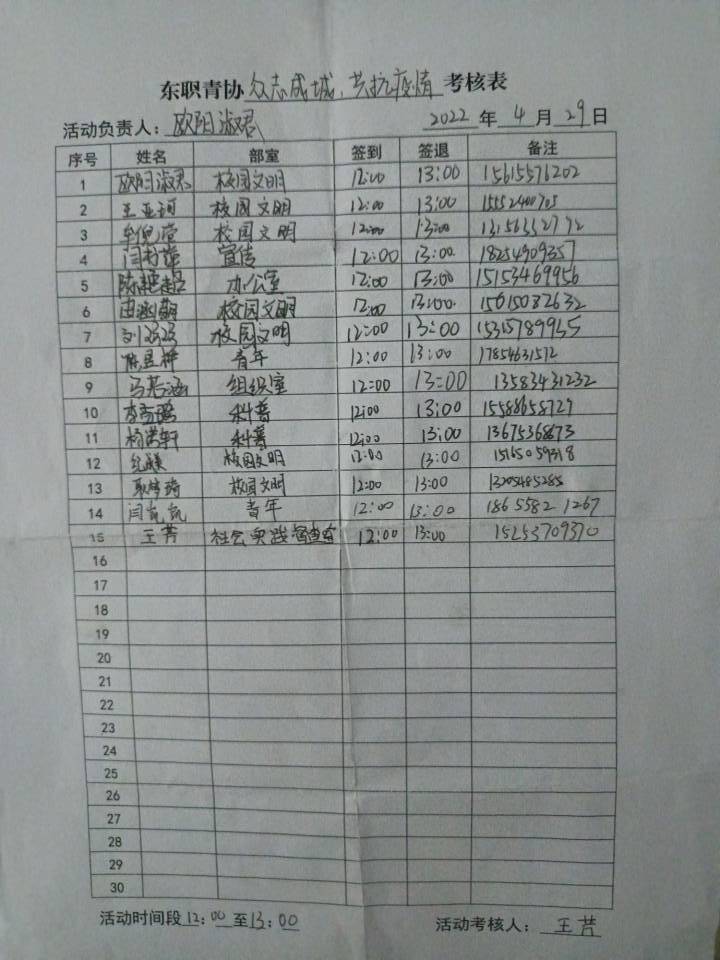 东职青协 众志成城、共抗疫情 考核表
活动负责人：欧阳淑君 2022年4月29日
序号 姓名 部室 签到 签退 备注
1 欧阳淑君 校园文明 12:00 13:00 15615576202
2 王亚珂 校园文明 12:00 13:00 15552400705
3 校园文明 12:00 13:00 13156332772
4 宣传 12:00 13:00 18254909357
5 办公室 12:00 13:00 15153469956
6 校园文明 12:00 13:00. 15615082632
7 校园文明 12:00 13:00 15315789955
8 青年 12:00 13:00 17854631572
9 马若涵 组织室 12:00 13:00 13583431232
10 科普 12:00 13:00 15588658729
11 科普 12:00 13:00 13675368873
12 校园文明 12:00 13:00 15165059318
13 校园文明 12:00 13:00 13205485285
14 闫岚岚 青年 12:00 13:00 186 5582 1267
15 王芳 社会实践 12:00 13:00 15253709370
16
17
18
19
20
21
22
23
24
25
26
27
28
29
30
活动时间段 12：00 至13：00 活动考核人： 王芳